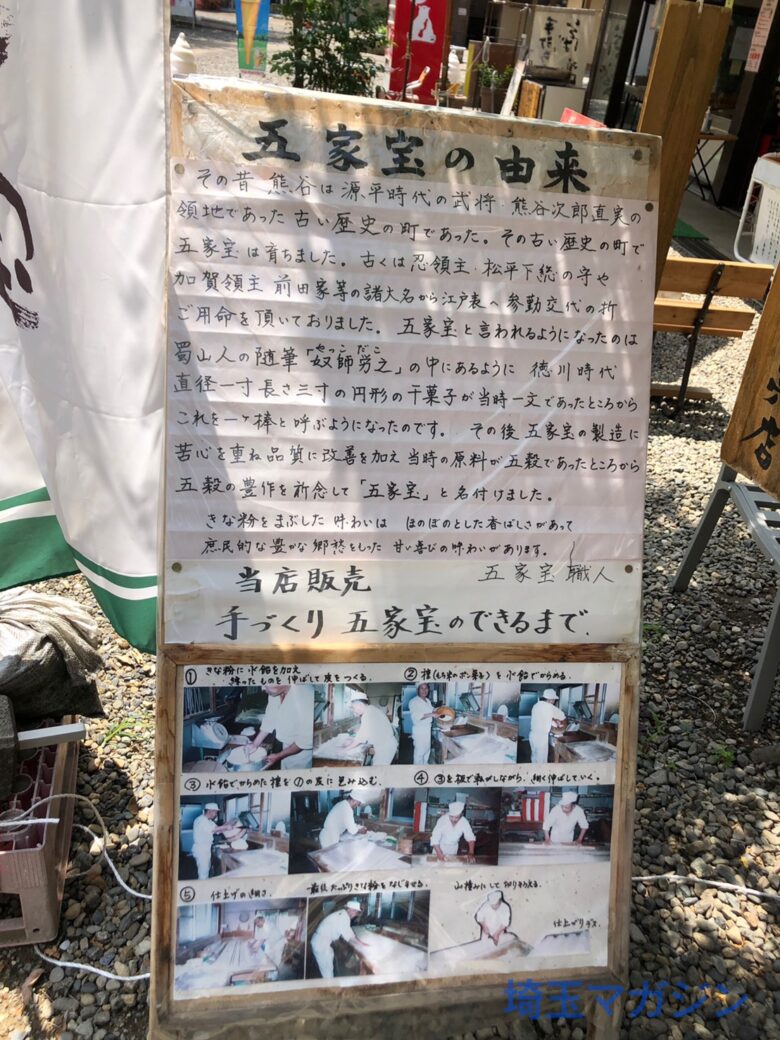 五家宝の由来
その昔 熊谷は源平時代の武将 熊谷次郎直実の
領地であった古い歴史の町であった。その古い歴史の町で
五家宝は育ちました。古くは忍領主 松平下総の守や
加賀領主 前田家等の諸大名から江戸表へ参勤交代の折
ご用命を頂いておりました。五家宝と言われるようになったのは
蜀山人の随筆「奴師労之」の中にあるように 徳川時代
やっこ だこ
直径一寸長さ三寸の円形の干菓子が当時一文であったところから
これを一ヶ棒と呼ぶようになったのです。その後五家宝の製造に
苦心を重ね品質に改善を加え当時の原料が五穀であったところから
五穀の豊作を祈念して「五家宝」と名付けました。
きな粉をまぶした味わいは ほのぼのとした香ばしさがあって
庶民的な豊かな郷愁をもった 甘い喜びの味わいがあります。
当店販売 五家宝職人
手づくり 五家宝のできるまで.
① きな粉に水飴を加え
練ったものを伸ばして皮をつくる.
② 種(もち米のポン菓子)を水飴でからめる.
③ 水飴でからめた種を①の皮に包み込む.
④ ③を板で転がしながら.細く伸ばしていく.
⑤ 仕上げの細さ.
仕上げりデス.
埼玉マガジン